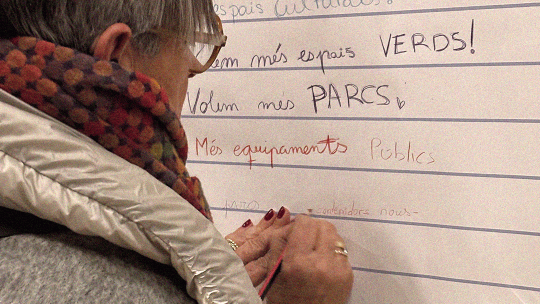 espais culturals!
volem més espais VERDS!
Volem més PARCS
Més equipaments Públics
contenidors nous